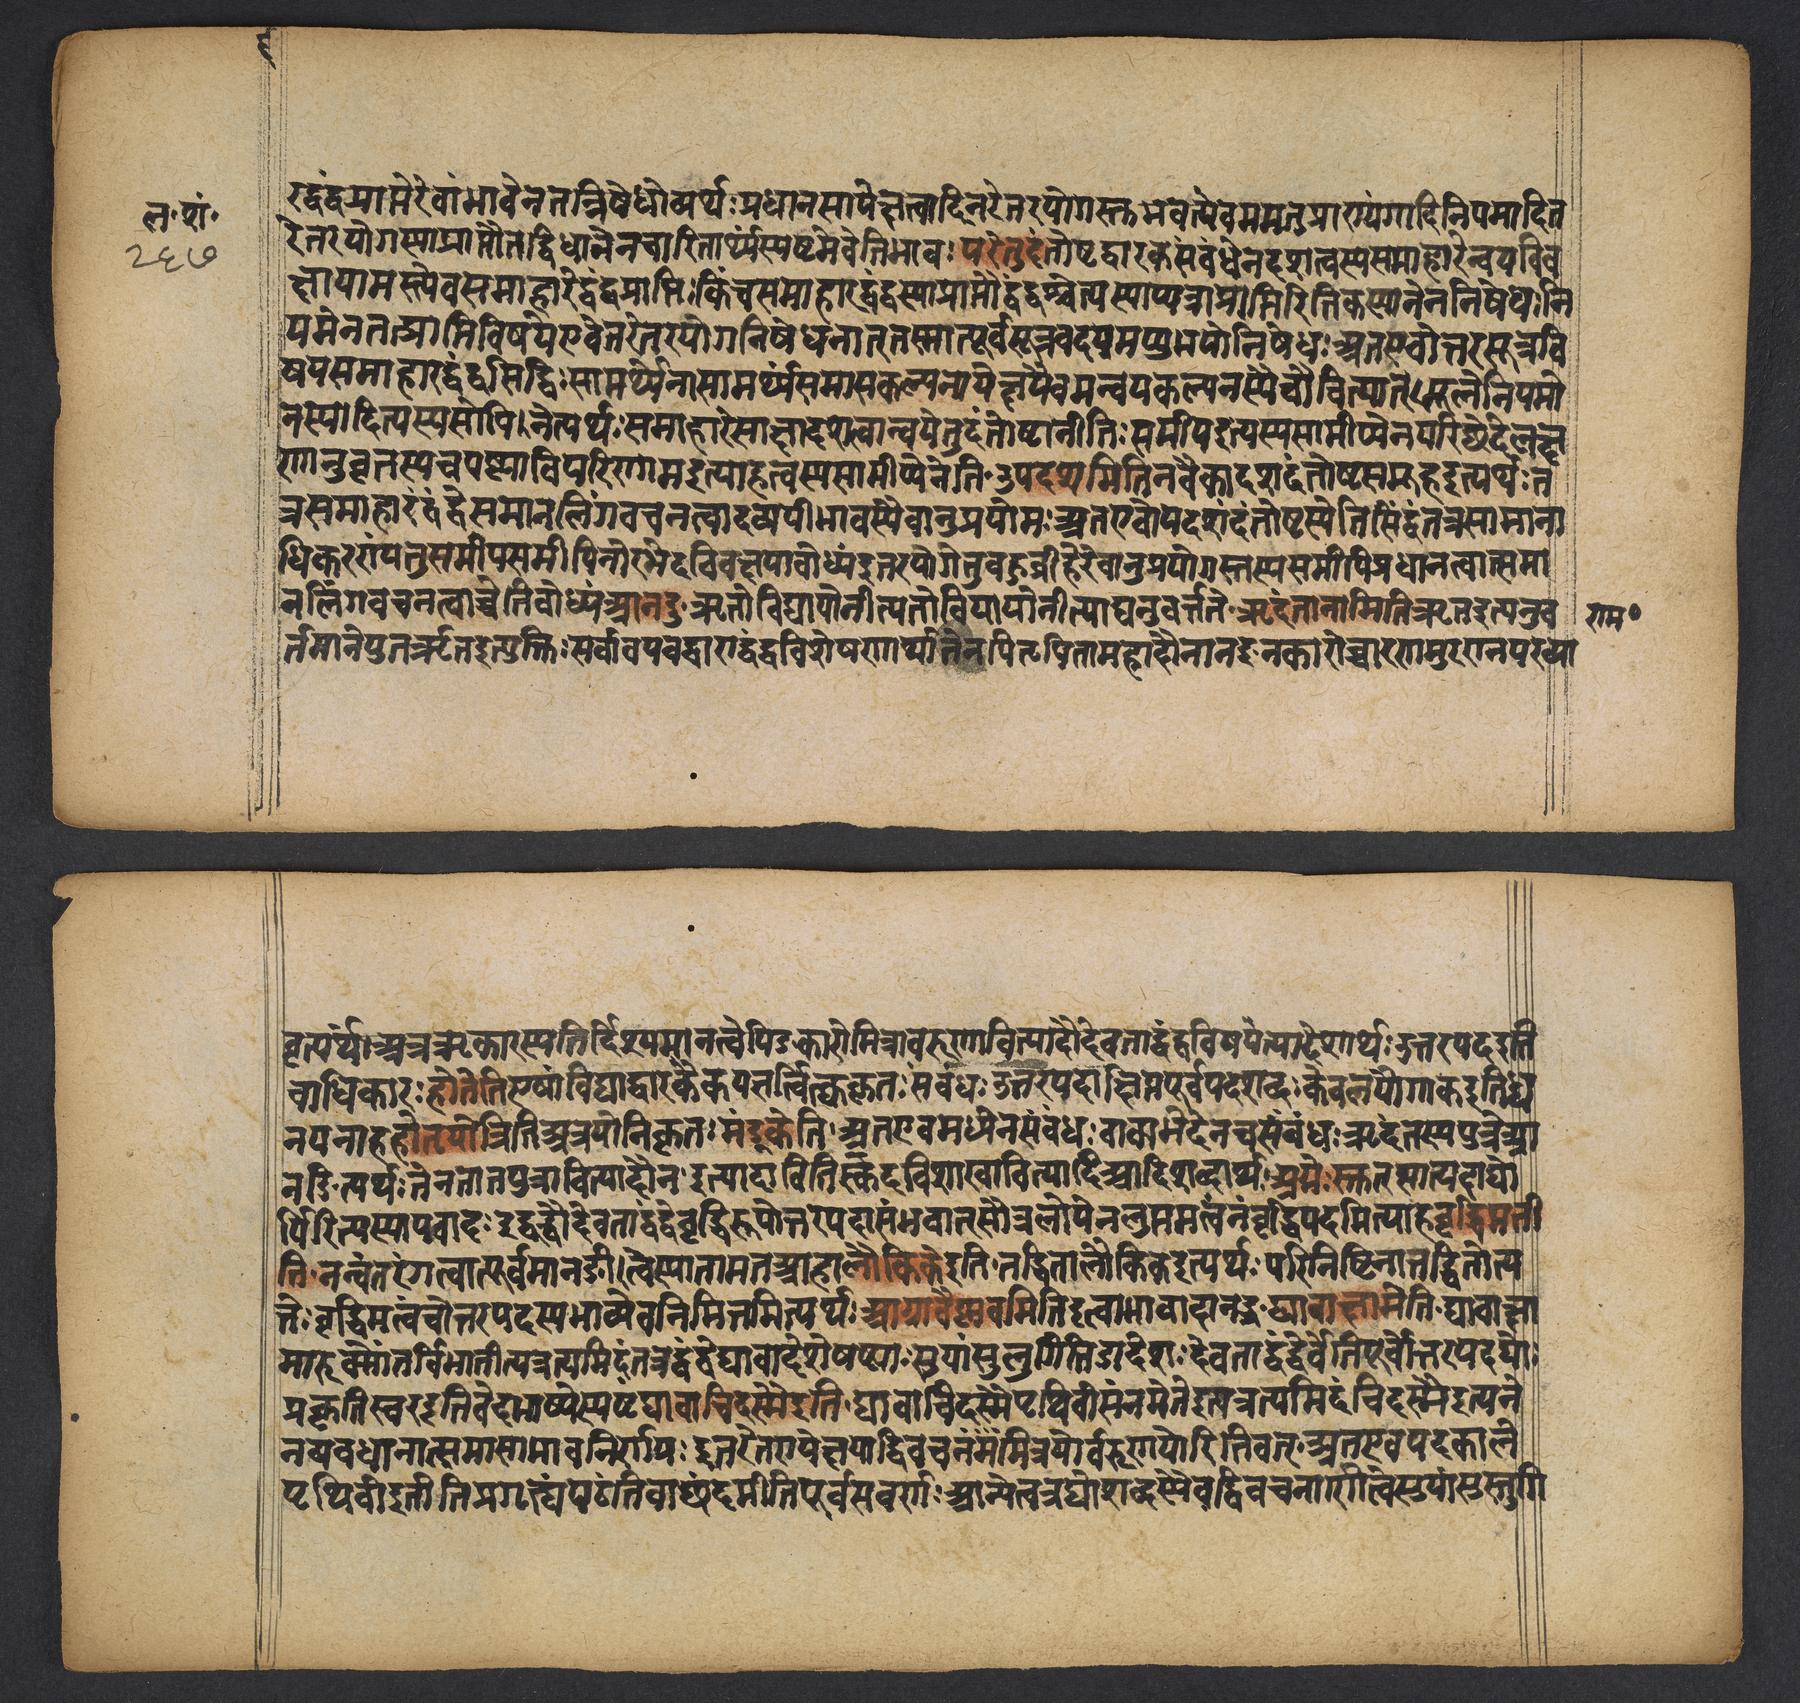 ल॰पां॰
२६७
रद्वंद्वप्राप्तेरेवाभावेनतन्निषेधोव्यर्थः प्रधानसापेक्षत्वादिनरेतरयोगस्तुभवत्येवममतुप्राण्यंगादिनियमादित
रेतरयोगस्याप्राप्तौतद्विधानेनचारितार्थ्यंस्पष्टमेवेतिभावः परेतुदंतोष्टद्वारकसंबंधेनदशत्वस्यसमाहारेन्वयविव
क्षायामस्त्येवसमाहारद्वंद्वप्राप्तिः किंचसमाहारद्वंद्वस्याप्राप्तौद्वंद्वश्चेत्यस्याप्यत्राप्राप्तिरितिकस्यानेननिषेधः नि
यमेनतत्प्राप्तिविषयेएवेतरेतरयोगनिषेधनात् तस्मात्पूर्वसूत्रवदयमप्युभयोर्निषेधः अतएवोत्तरसूत्रवि
षयसमाहारद्वंद्वसिद्धिः सामर्थ्येनासामर्थ्यसमासकल्पनापेक्षयैवमन्वयकल्पनस्यैवौचित्यात्
नस्यादित्यस्यसोपि नेत्यर्थः समाहारेसाक्षाद्दशत्वान्वयेतुदंतोष्टानीति समीपइत्यस्यसामीप्येनपरिछेदेलक्ष
णानुवृत्तस्यचषष्ठ्याविपरिणामइत्याहतत्वस्यसामीप्येनेति उपदशमितिनवैकादशदंतोष्टसमूहइत्यर्थः त
त्रसमाहारद्वंद्वेसमानलिंगवचनत्वादव्ययीभावस्यैवानुप्रयोगः अतएवोपदशंदंतोष्टस्येतिसिद्धं तत्रसामाना
धिकरण्यंतुसमीपसमीपिनोरभेदविवक्षयाबोध्यं इतरयोगेतुबहुव्रीहेरेवानुप्रयोगस्तस्यसमीपिप्रधानत्वात्समा
नलिंगवचनत्वाच्चेतिबोध्यं आनङ् ऋतोविद्यायोनीत्यतोविद्यायोनीत्याद्यनुवर्त्तते ऋदंतानामितिऋतइत्यनुव
राम॰
र्तमानेपुनर्ऋतइत्युक्तिः सर्वावयवद्वाराद्वंद्वविशेषणार्था तेनपितृपितामहादौनानङ् नकारोच्चारणमुरणनपरत्वा
वृत्त्यर्थं अत्रऋकारस्यनिर्दिश्यमानत्वेपिङकारोमित्रावरुणावित्यादौदेवताद्वंद्वविषयेत्यादेशार्थः उत्तरपदइति
वाधिकारः होतेतिएषांविद्याद्वारकएकयज्ञर्त्विक्त्वकृतः संबंधः उत्तरपदाक्षिप्तपूर्वपदशब्दः केवलयौगाकइतिध्व
नयनाहहोतृपोत्रितिअत्रयोनिकृतः मंडूकेति अतएवमध्येनसंबंधः वाक्यभेदेनचसंबंधः ऋदंतस्यपुत्रेआ
नङित्यर्थः तेनतातपुत्रावित्यादौन इत्यादावितिस्कंदविशाखावित्यादिआदिशब्दार्थः अग्नेः स्तुत्सात्पदाद्यो
र्षिरित्यस्यापवादः इद्वृद्धौदेवताद्वंद्वेवृद्धिरूपोत्तरपदासंभवात्सौत्रलोपेनलुप्तममत्वंतंवृद्धिपदमित्याहवृद्धिमती
ति नन्वंतरंगत्वात्पूर्वमानङीत्वेस्यातामतआहालौकिकइति तद्धितालौकिकइत्यर्थः परिनिष्ठितात्तद्धितोत्प
त्तेः वृद्धिमत्वंचोत्तरपदस्यभाव्येवनिमित्तमित्यर्थः आग्नावैष्णवमितिइत्वाभावादानङ् द्यावाक्षामेति द्यावाक्षा
मारुक्मोंतर्विभातीत्यत्रत्यमिदंतत्रद्वंद्वेद्यावादेशेषष्ठ्याः सुपांसुलुगितिडादेशः देवताद्वंद्वेचेतिपूर्वोत्तरपदयोः
प्रकृतिस्वरइतिवेदभाष्येस्पष्टं द्यावाचिदस्मैइति द्यावाचिदस्मैपृथिवीसंनमेतेइत्यत्रत्यमिदं चिदस्मैइत्यने
नव्यवधानात्समासाभावनिर्णयः इतरेतरापेक्षयाद्विवचनंममित्रयोर्वरुणयोरितिवत् अतएवपदकाले
पृथिवीइतीतिप्रगृह्यंपठंतिवाछंदसीतिपूर्वसवर्णः आम्नेत्वत्रद्योशब्दस्यैवद्विवचनाणीत्वेसुपांसुलुगि